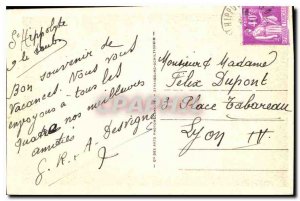 St Hippolyte
le
Bon souvenir de
Vacances. Nous vous
envoyons à tous les
quatre nos meilleures
amitiés
G. R. & A.
Monsieur & Madame
Félix Dupont
Place Tabareau
Lyon IV.